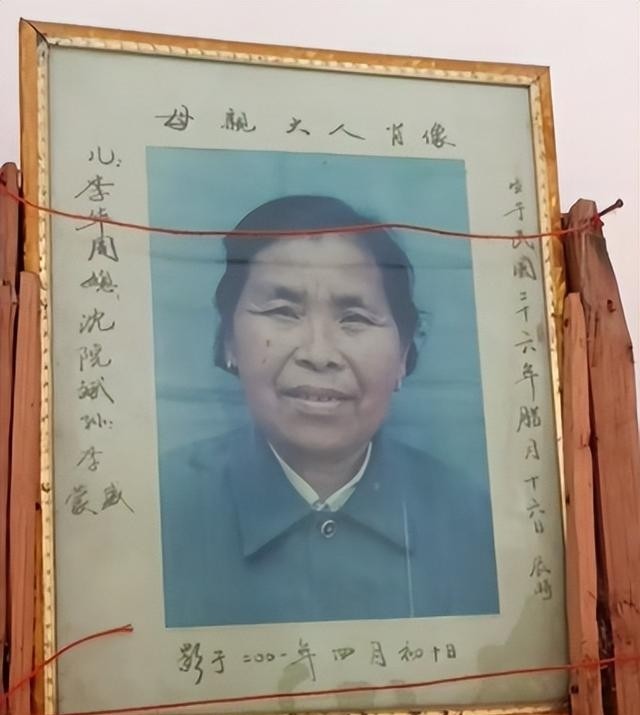 母親大人肖像
生于民國二十六年腊月十六日 辰時
儿:李华周媳:沈院斌孙:李
蒙
影于二00一年四月初十日